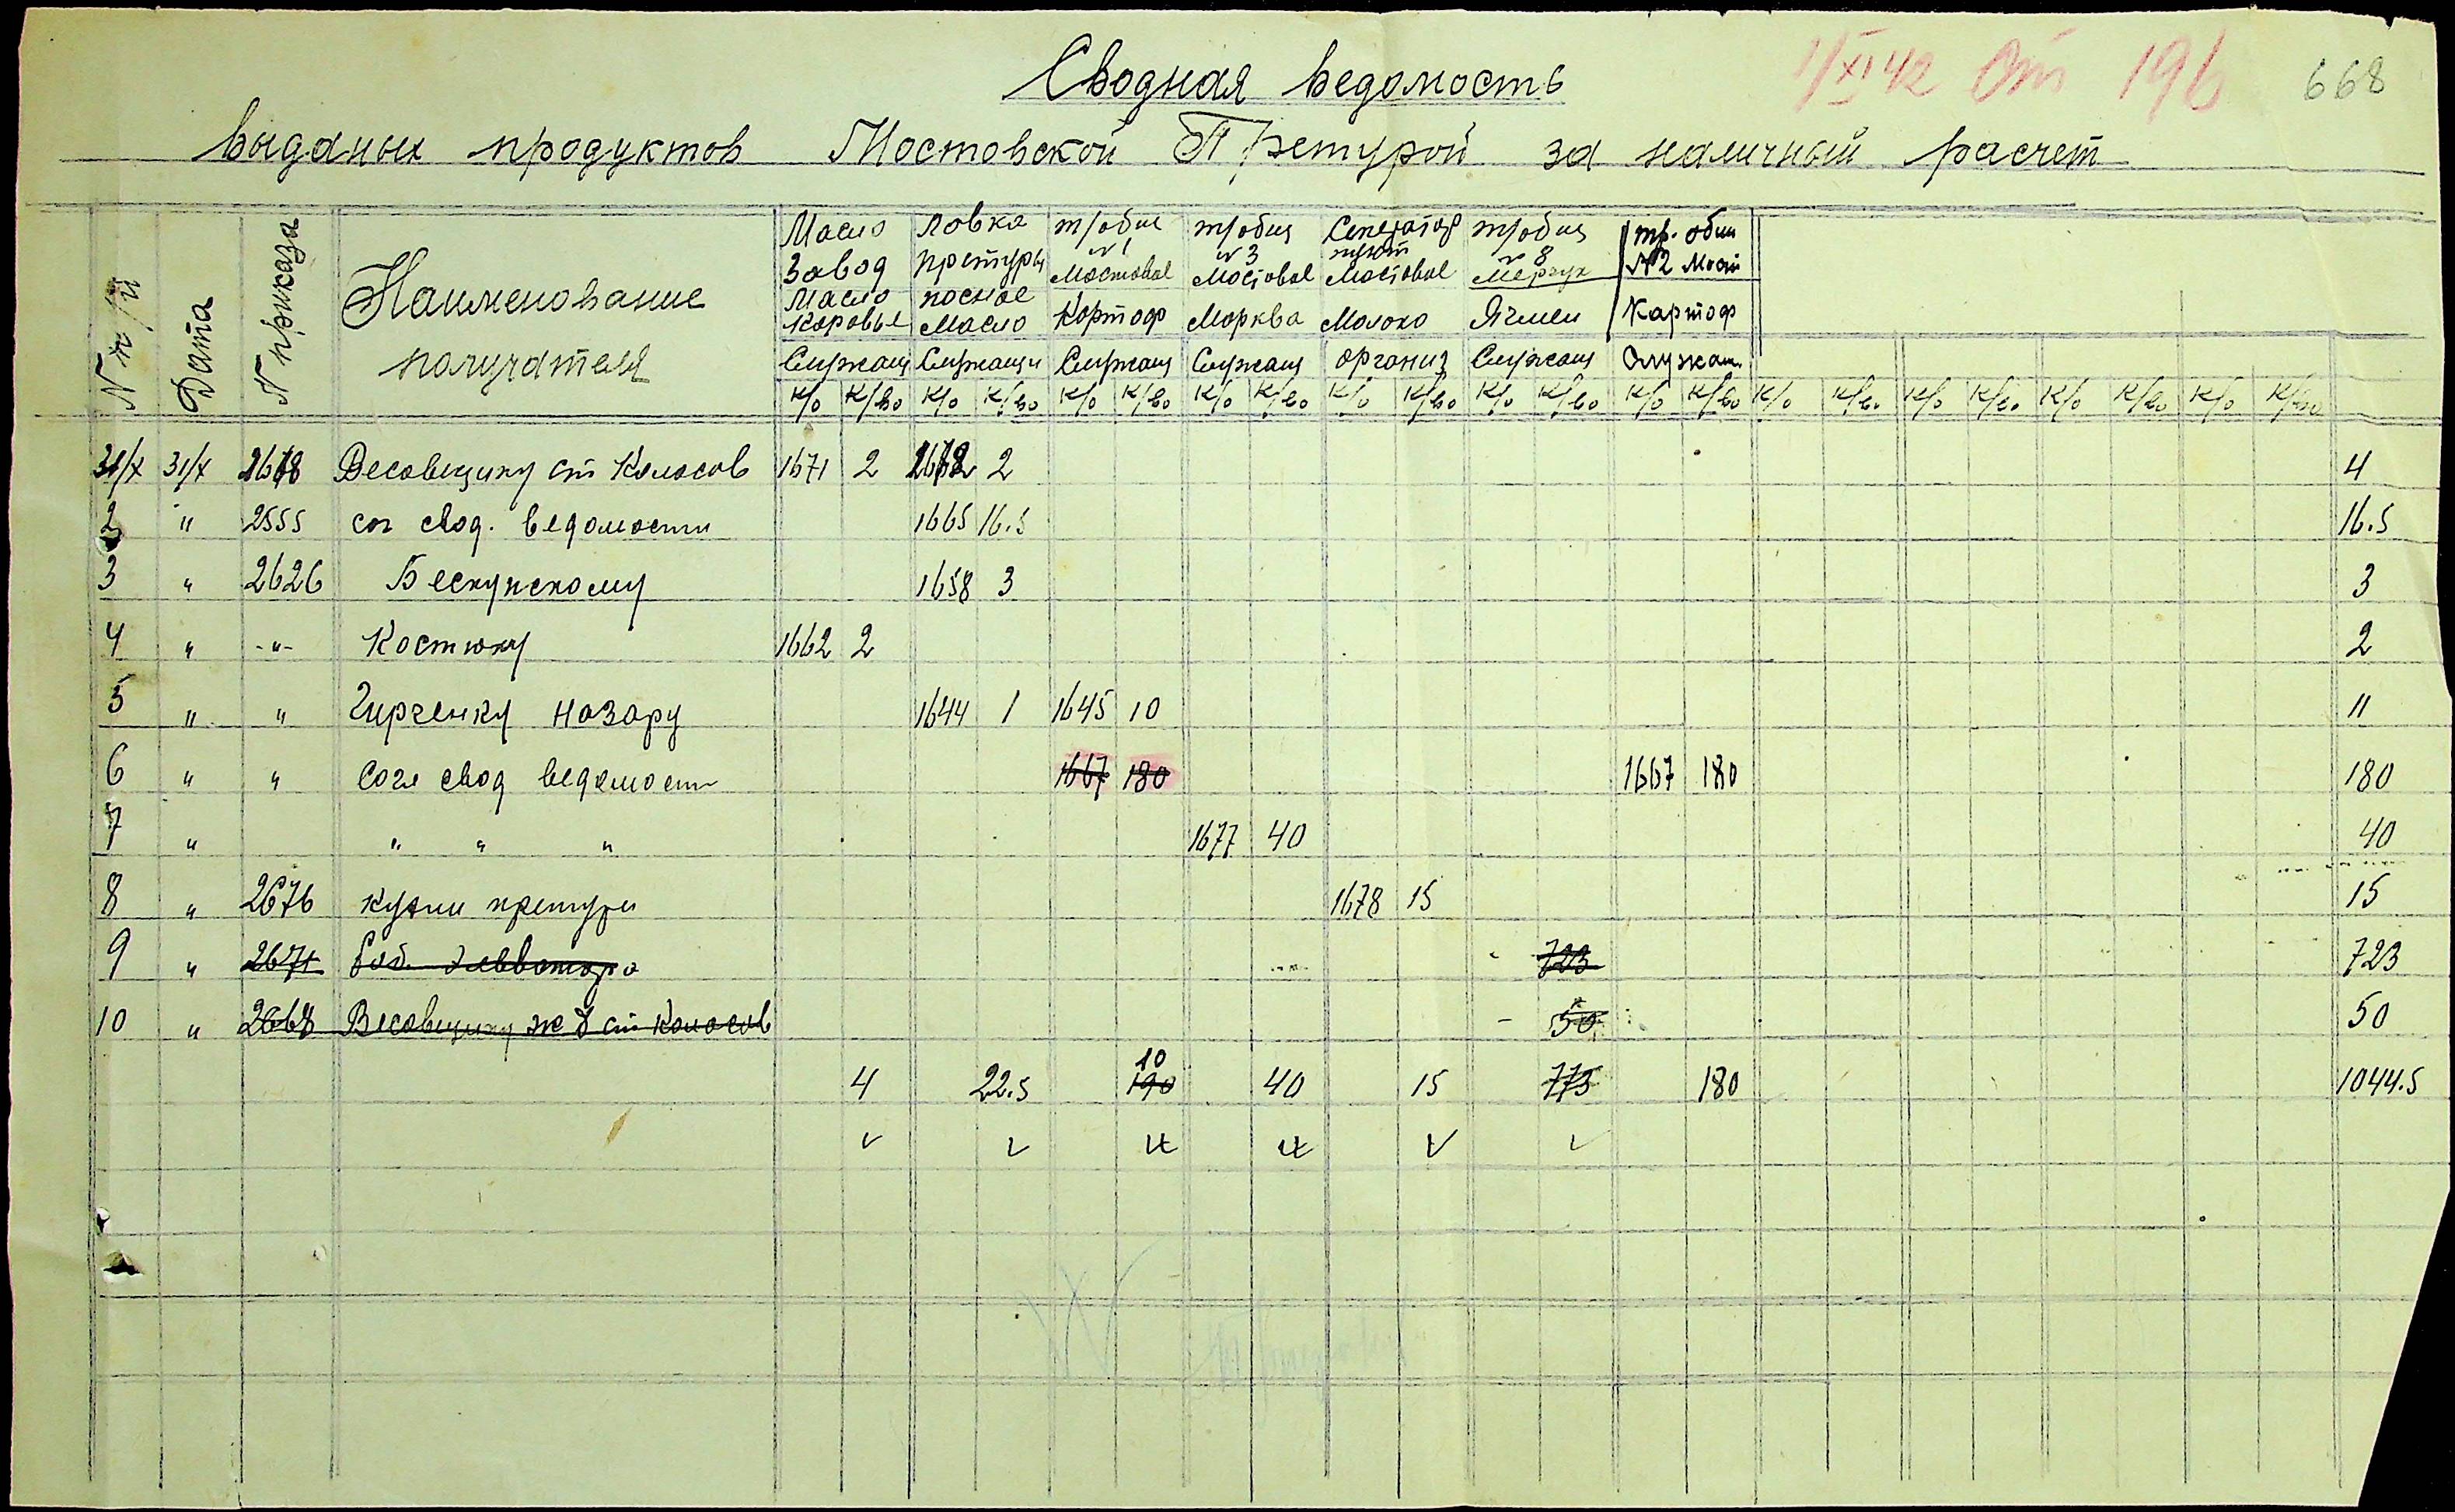 Сводная ведомость
1/XI 42 От 196 668
выданых продуктов Мостовской Претурой за наличный расчет
N п/п Дата N приказа Наименование получателя
Масло Завод Масло Коровье Служащ
Ловка претуры посное Масло Служащи
тр/общ N 1 Мостовое Картоф Служащ
тр/общ N 3 Мостовое Морква Служащ
Сепаратор пункт Мостовое Молоко организ
тр/общ N 8 Ячмен Служащ
тр. общ N2 Мост Картоф Служащ
К/о К/во К/о К/во К/о К/во К/о К/во К/о К/во К/о К/во К/о К/во К/о К/во К/о К/во К/о К/во К/о К/во
31/X 31/X Весовщику ст Колосов 1671 2 1672 2 4
2 " 2555 сог свод. ведомости 1665 16.5 16.5
3 " 2626 Бескупскому 1658 3 3
4 " -"- Костюку 1662 2 2
5 " " Чирченку Назару 1644 1 1645 10 11
6 " " Согл свод ведомости 1667 180 1667 180 180
7 " " " " 1677 40 40
8 " 2676 кухни претуры 1678 15 15
9 " 2671 Раб. Элеватора 723 723
10 " 2668 Весовщику ж д ст Колосов - 50 50
10
4 22.5 190 40 15 773 180 1044.5